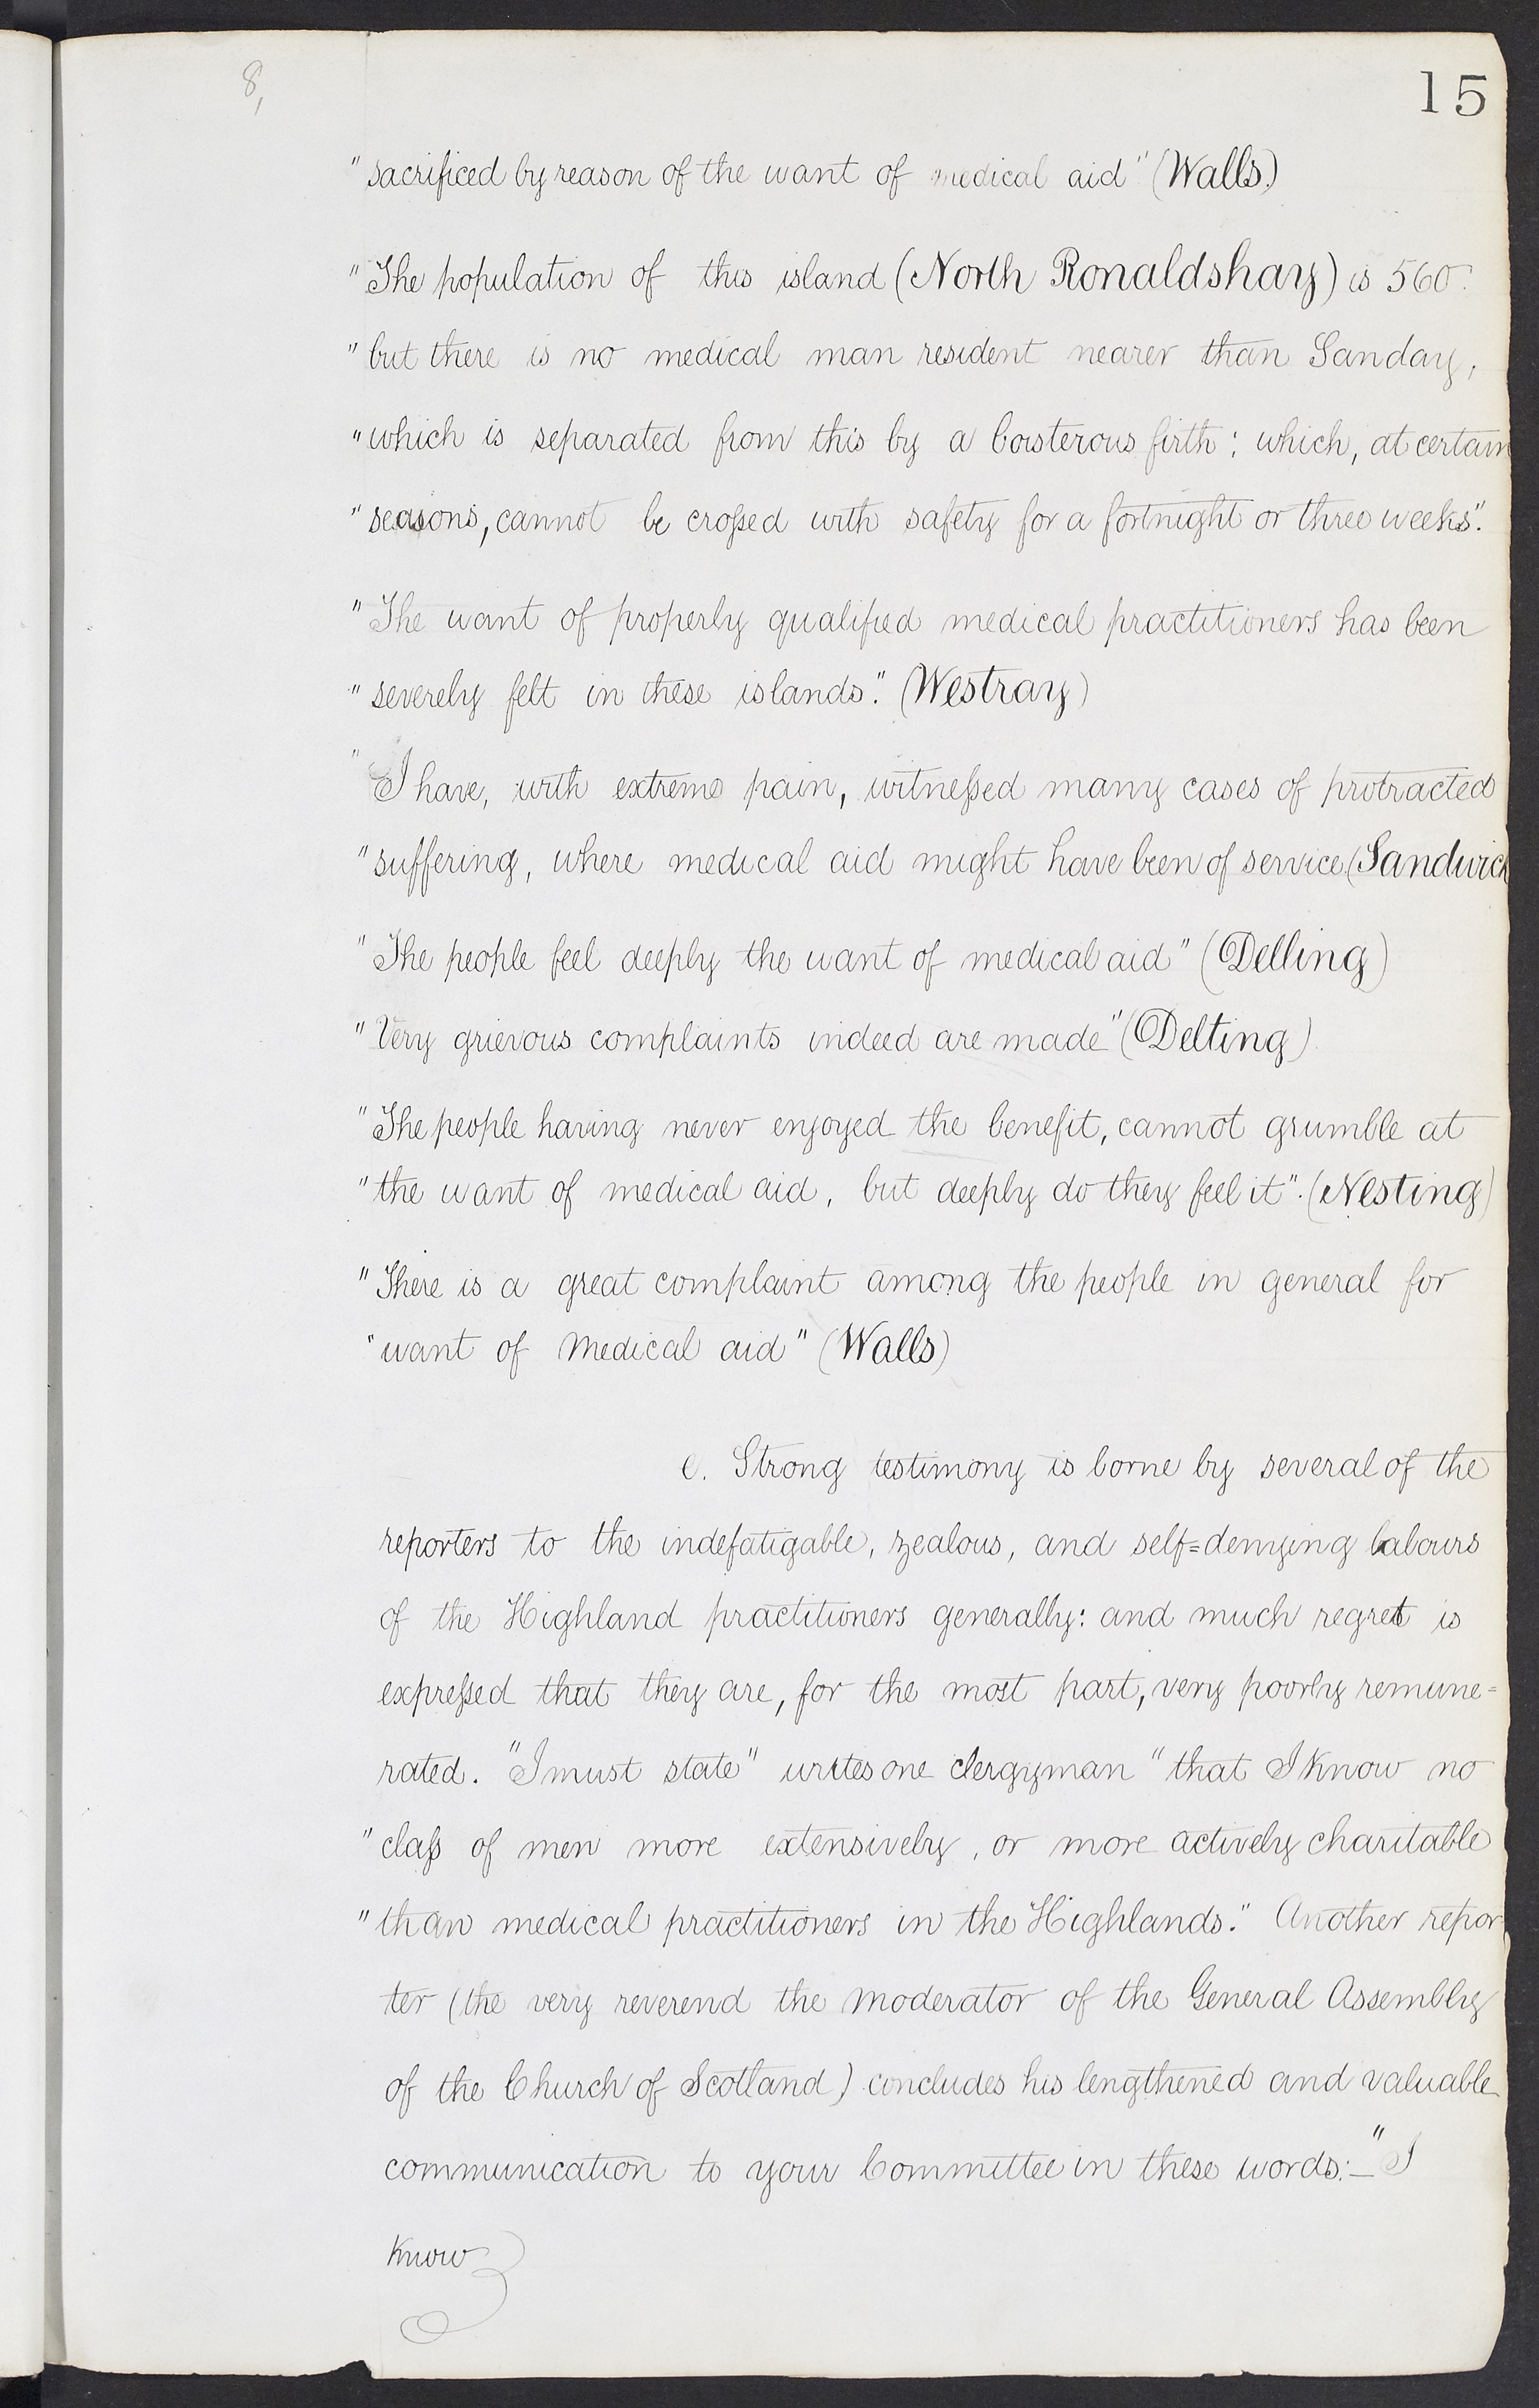 8,
15
"sacrificed by reason of the want of medical aid" (Walls)
"The population of this island (North Ronaldshay) is 560.
"but there is no medical man resident nearer than Sanday,
"which is separated from this by a boisterous firth; which, at certain
"seasons, cannot be crossed with safety for a fortnight or three weeks".
"The want of properly qualified medical practitioners has been
"severely felt in these islands." (Westray)
"I have, with extreme pain, witnessed many cases of protracted
"suffering, where medical aid might have been of service (Sandwick
"The people feel deeply the want of medical aid" (Delling)
"Very grievous complaints indeed are made" (Delting).
"The people having never enjoyed the benefit, cannot grumble at
"the want of medical aid, but deeply do they feel it". (Nesting)
"There is a great complaint among the people in general for
"want of Medical aid" (Walls)
e. Strong testimony is borne by several of the
reporters to the indefatigable, zealous, and self=denying labours
of the Highland practitioners generally: and much regret is
expressed that they are, for the most part, very poorly remune=
rated. "I must state" writes one clergyman "that I know no
"class of men more extensively, or more actively charitable
"than medical practitioners in the Highlands." Another repor
ter (the very reverend the Moderator of the General Assembly
of the Church of Scotland) concludes his lengthened and valuable
communication to your Committee in these words:_ "I
know